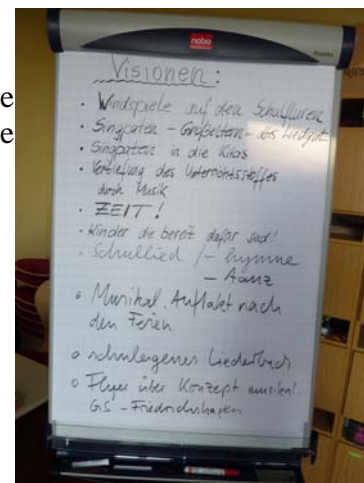 nobo
Visionen:
• Windspiele auf den Schulfluren
• Singpaten - Großeltern - das Liedgut
• Singpaten in die Kitas
• Vertiefung des Unterrichtsstoffes
durch Musik
• ZEIT!
• Kinder die bereit dafür sind!
• Schullied /- hymne
- tanz
• Musikal. Auftakt nach
den Ferien
• schuleigenes Liederbuch
• Flyer über Konzept musikal.
GS - Friedrichshagen
e
e